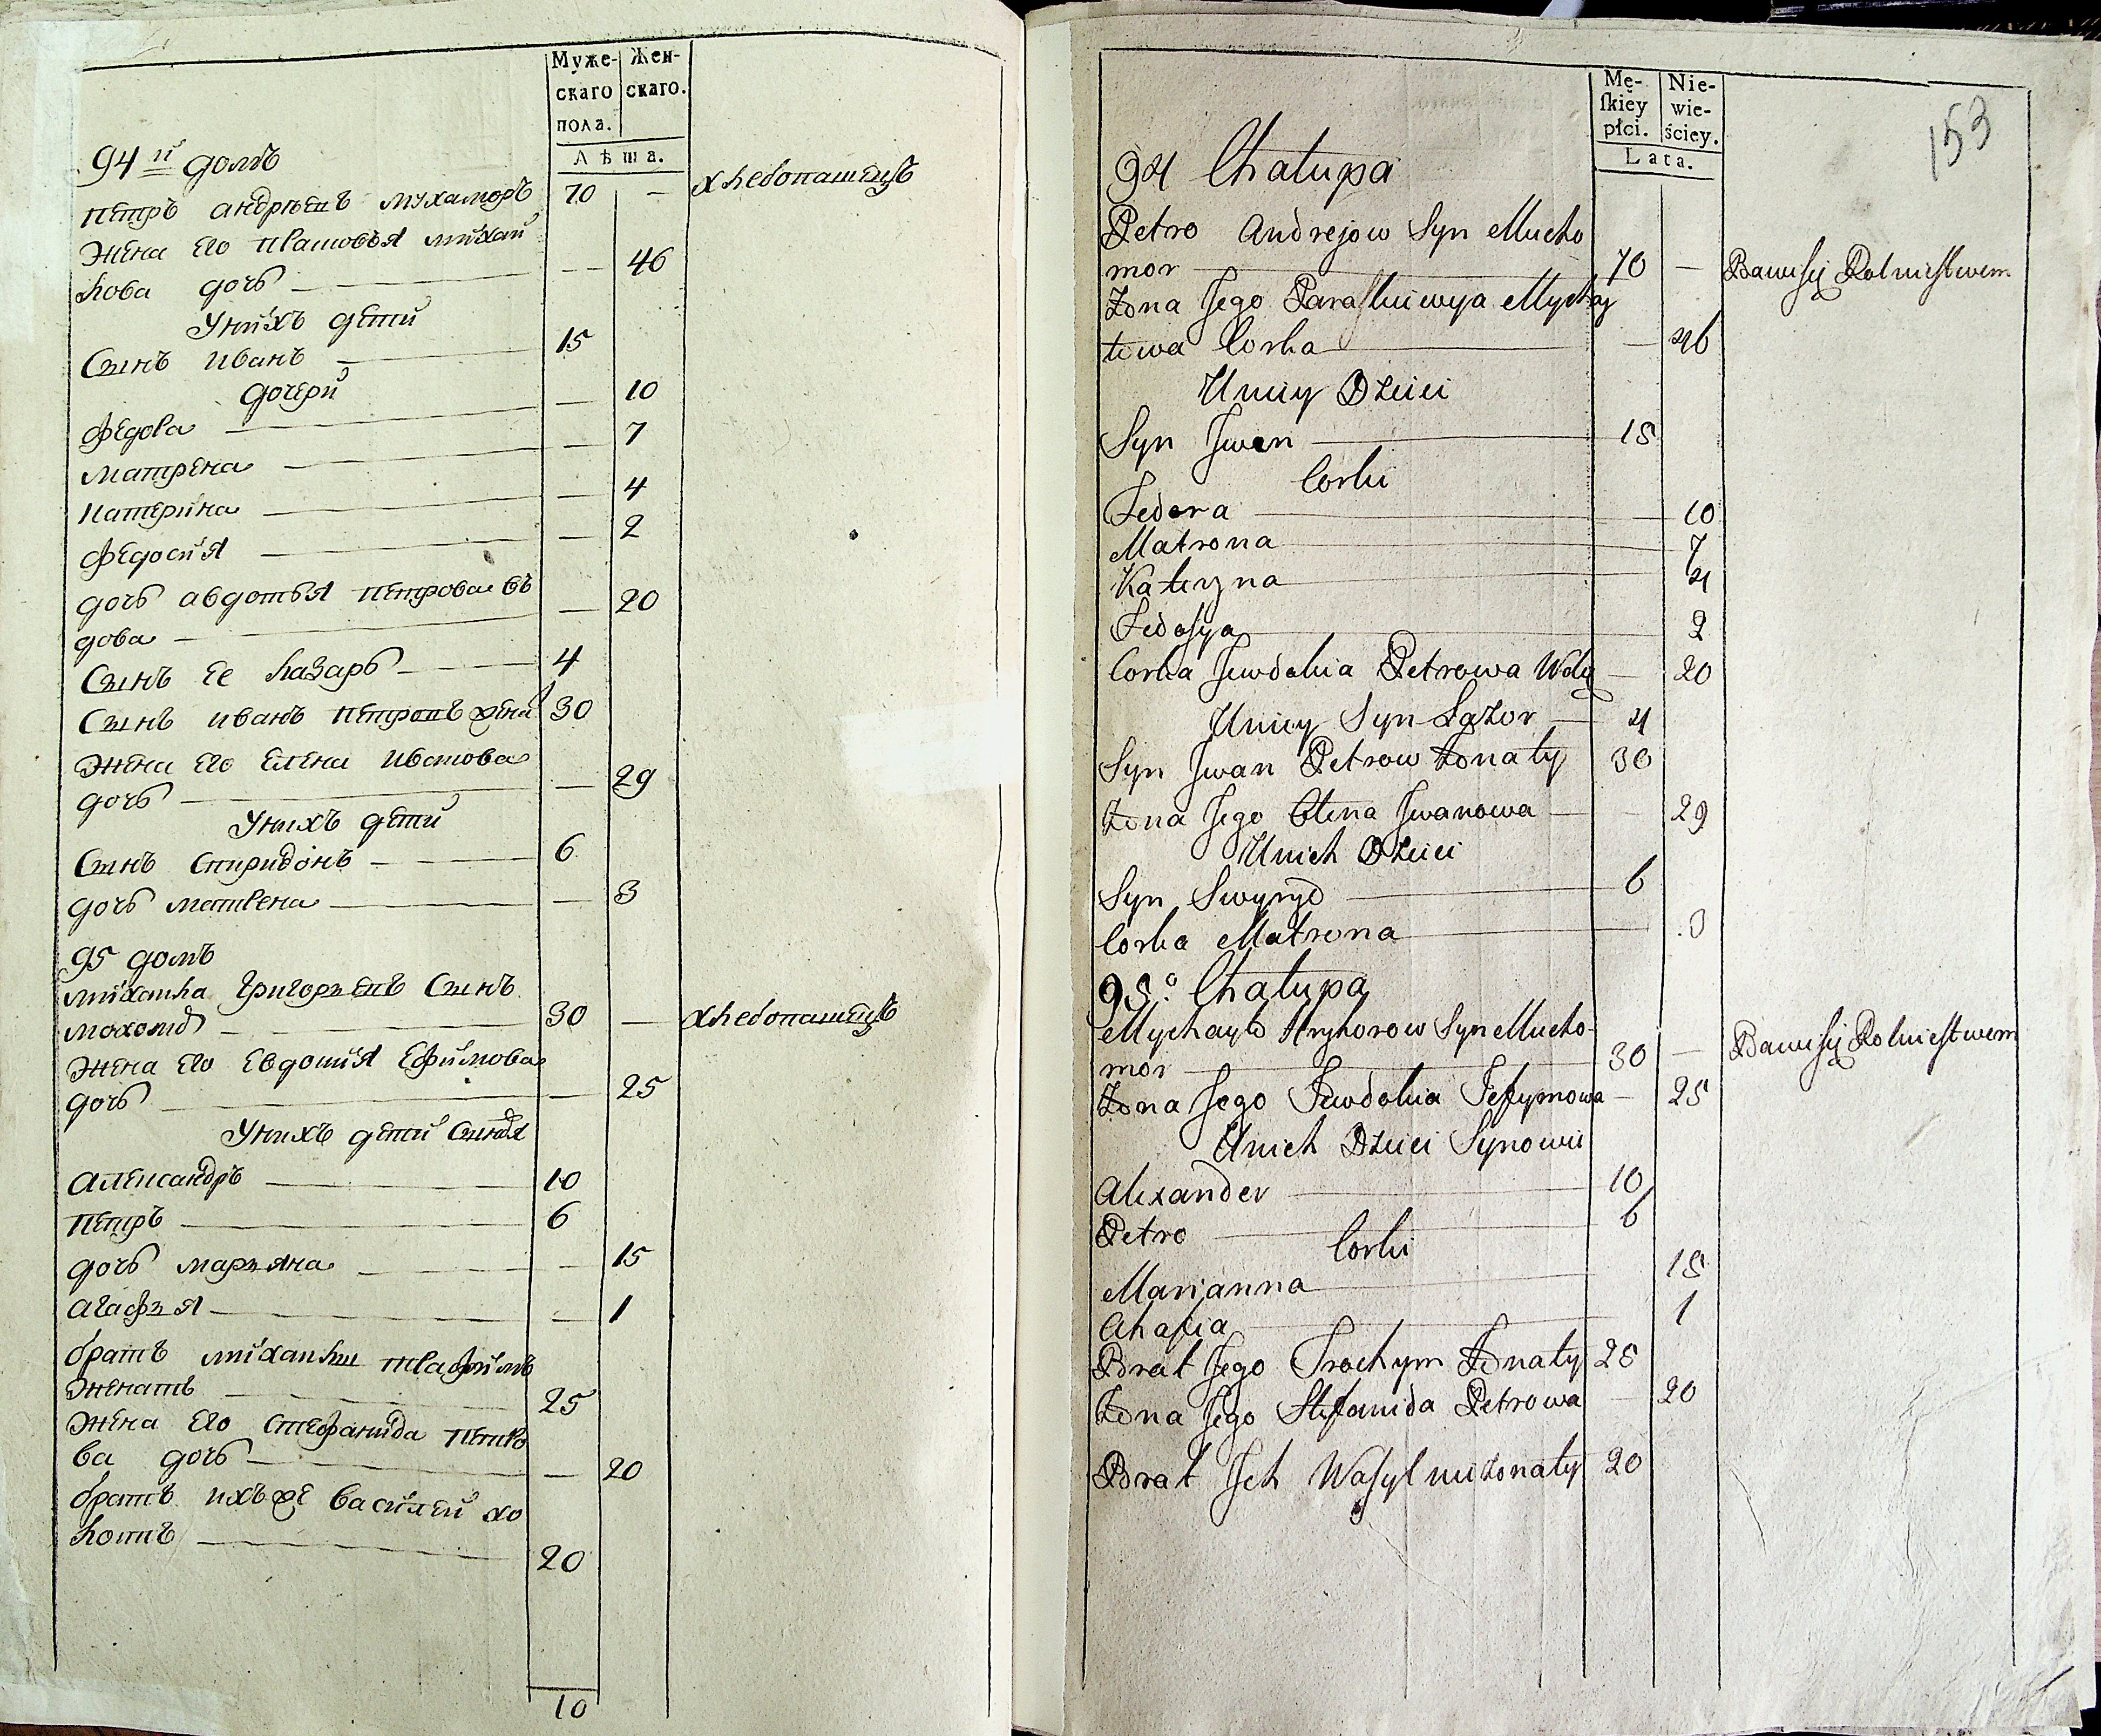 Муже-
скаго
пола.
Жен-
скаго.
Лѣта.
94 й домъ
петръ андрѣевъ мухаморъ 70 — хлебопашецъ
жена его Прасковья михай
лова дочь — — 46
У нихъ дети
Сынъ иванъ — 15
дочери
федора — — 10
матрена — — 7
катерина — — 4
федосия — — 2
дочь авдотья петрова в
дова — — 20
Сынъ ее лазарь — 4
Сынъ иванъ петровъ жена 30
жена его елена иванова
дочь — — 29
У нихъ дети
Сынъ спиридонъ — 6
дочь матрена — — 3
95 домъ
михайла григорьевъ Сынъ
мохомо — 30 — хлебопашецъ
жена его евдокия ефимова
дочь — — 25
У нихъ дети Сыновья
александръ — 10
петръ — 6
дочь марьяна — — 15
агафья — — 1
братъ михайлы трафимъ
женатъ — 25
жена его стефанида петро
ва дочь — — 20
братъ ихъ же василей хо
лостъ — 20
10
Mę-
ſkiey
płci.
Nie-
wie-
ściey.
Lata.
153
94 Chałupa
Petro Andrejow Syn Mucho
mor — 70 — Bawi się Rolnictwem
Żona Jego Paraskiewja Mychaj
łowa Corka — — 46
U nicy Dzieci
Syn Jwan — 15
Corki
Fedora — — 10
Matrona — — 7
Kateryna — — 4
Fedosya — — 2
Corka Jewdokia Petrowa Wdo — 20
U nicy Syn Łazor — 4
Syn Jwan Petrow Żonaty 30
Żona Jego Olena Jwanowa — — 29
U nich Dzieci
Syn Swyryd — 6
Corka Matrona — 3
95° Chałupa
Mychayło Hryhorow Syn Mucho-
mor — 30 — Bawi się Rolnictwem
Żona Jego Jewdokia Jefymowa — 25
U nich Dzieci Synowie
Alexander — 10
Petro — 6
Corki
Marianna — 15
Ahafia — 1
Brat Jego Trochym Żonaty 25
Żona Jego Stefanida Petrowa — 20
Brat Jch Wasyl nieżonaty 20